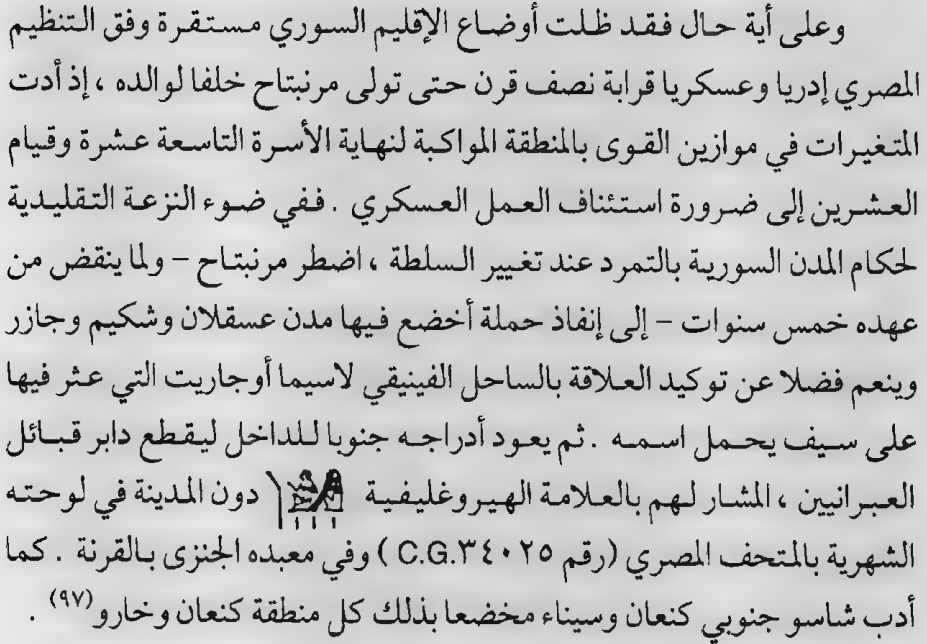 وعلى أية حال فقد ظلت أوضاع الإقليم السوري مستقرة وفق التنظيم
المصري إدريا وعسكريا قرابة نصف قرن حتى تولى مرنبتاح خلفا لوالده ، إذ أدت
المتغيرات في موازين القوى بالمنطقة المواكبة لنهاية الأسرة التاسعة عشرة وقيام
العشرين إلى ضرورة استئناف العمل العسكري . ففي ضوء النزعة التقليدية
لحكام المدن السورية بالتمرد عند تغيير السلطة ، اضطر مرنبتاح – ولما ينقض من
عهده خمس سنوات – إلى إنفاذ حملة أخضع فيها مدن عسقلان وشكيم وجازر
وينعم فضلا عن توكيد العلاقة بالساحل الفينيقي لاسيما أوجاريت التي عثر فيها
على سيف يحمل اسمه . ثم يعود أدراجه جنوبا للداخل ليقطع دابر قبائل
العبرانيين ، المشار لهم بالعلامة الهيروغليفية دون المدينة في لوحته
الشهرية بالمتحف المصري (رقم C.G.٣٤٠٢٥) وفي معبده الجنزى بالقرنة . كما
أدب شاسو جنوبي كنعان وسيناء مخضعا بذلك كل منطقة كنعان وخارو(٩٧) .